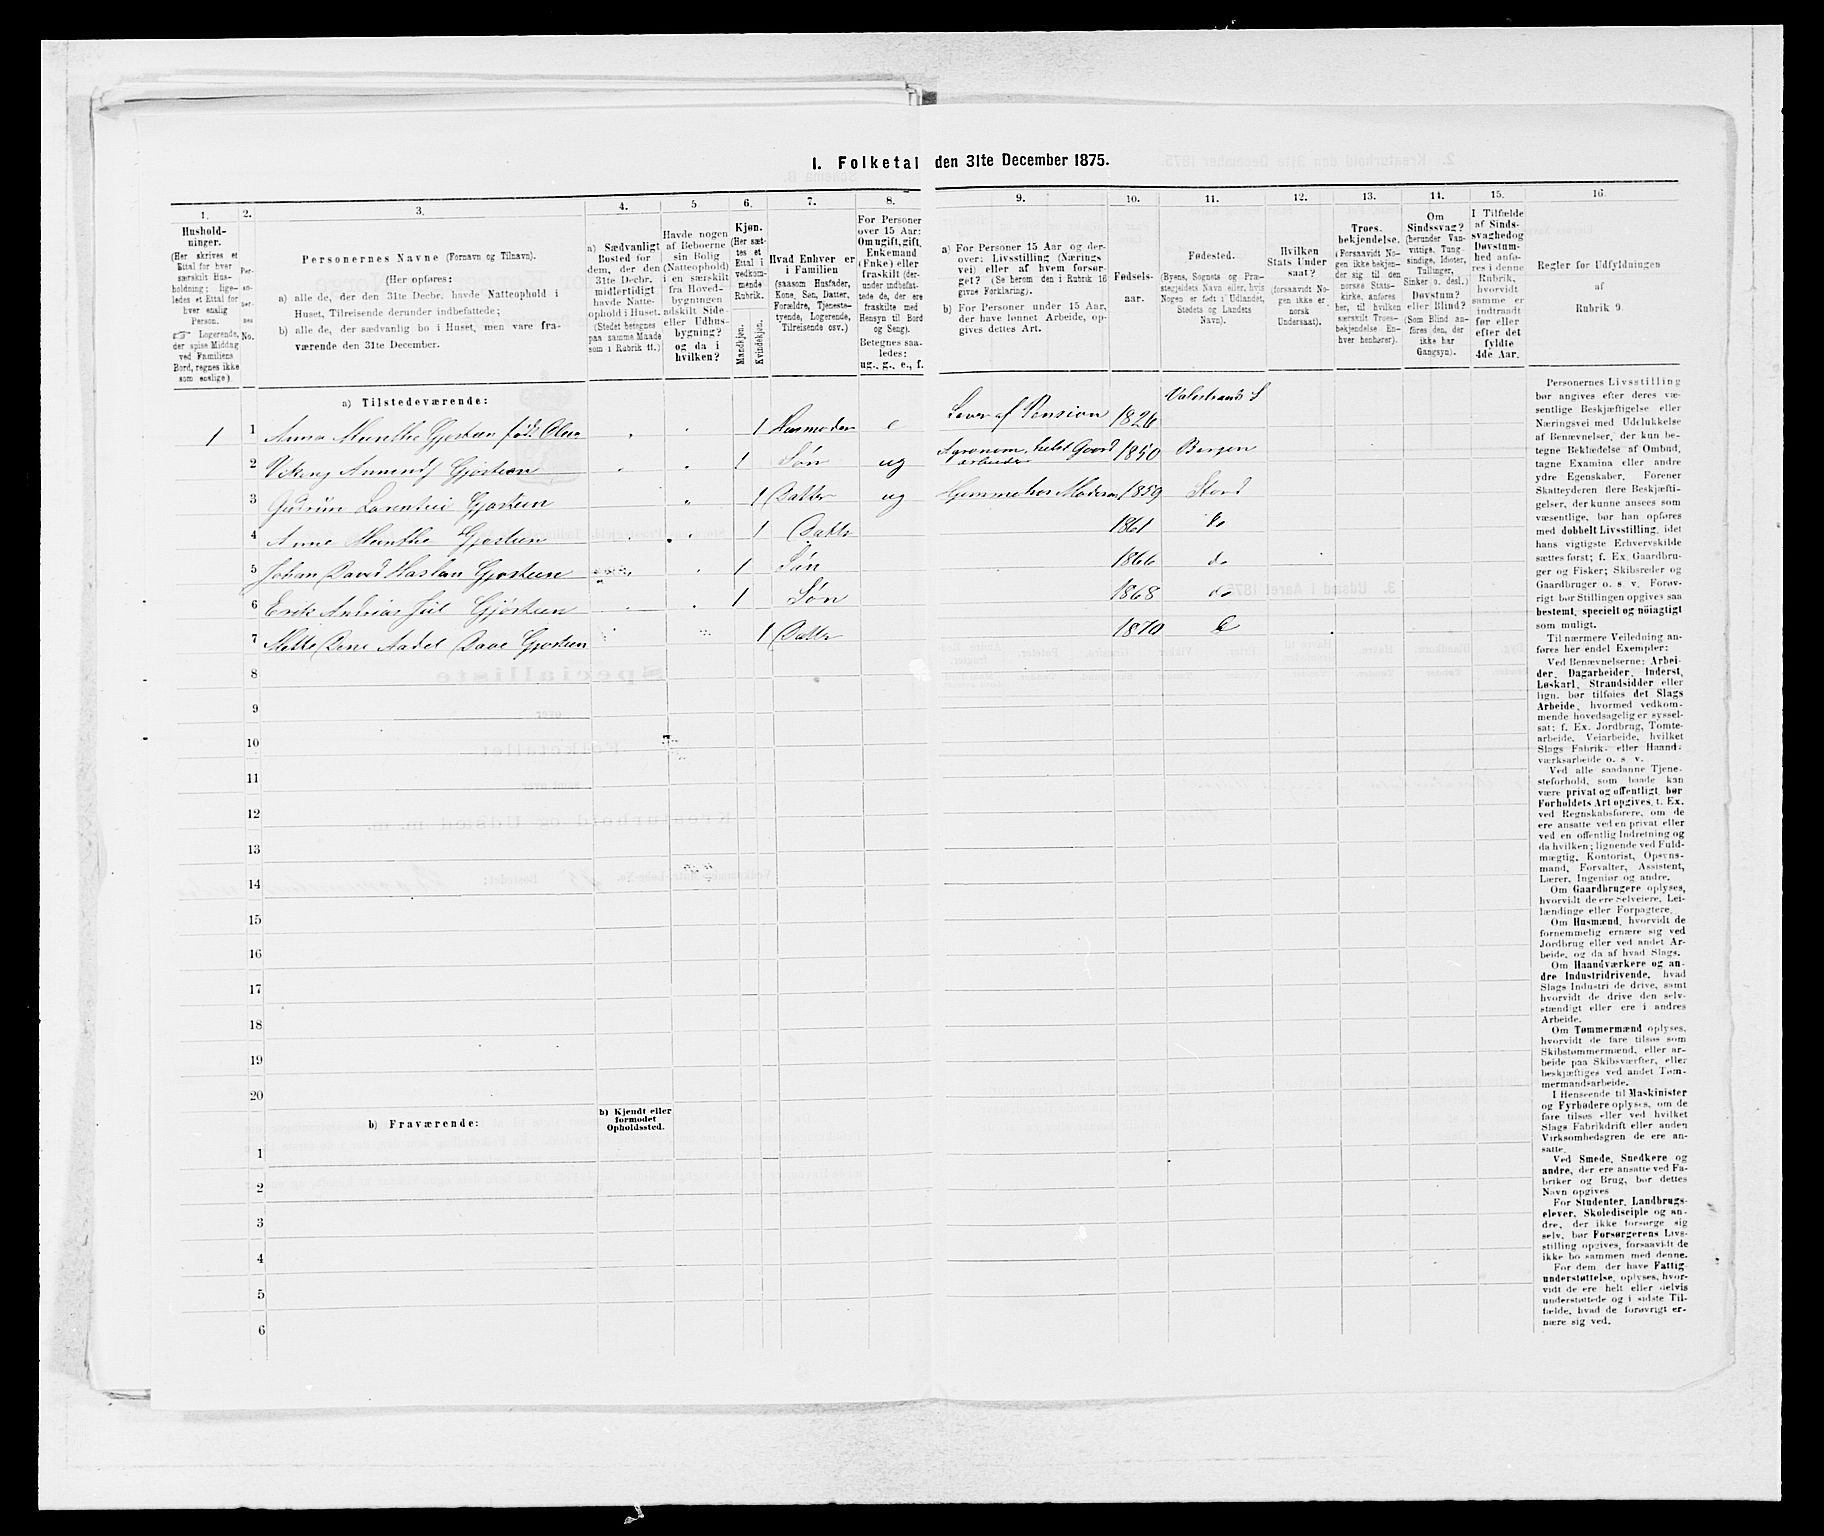 1. Folketal den 31te December 1875.
1.
Hushold-
ninger.
(Her skrives et
Ettal for hver
særskilt Hus-
holdning; lige-
ledes et Ettal for
hver enslig
Person.
Logerende,
der spise Middag
ved Familiens
Bord, regnes ikke
som enslige)
2.
No.
3.
Personernes Navne (Fornavn og Tilnavn).
(Her opføres:
a) alle de, der den 31te Decbr. havde Natteophold i
Huset, Tilreisende derunder indbefattede;
b) alle de, der sædvanlig bo i Huset, men vare fra-
værende den 31te December.
4.
a) Sædvanligt
Bosted for
dem, der den
31te Decbr.
midlertidigt
havde Natte-
ophold i Huset.
(Stedet betegnes
paa samme Maade
som i Rubrik 11.)
5
Havde nogen
af Beboerne
sin Bolig
(Natteophold)
i en særskilt
fra Hoved-
bygningen
adskilt Side-
eller Udhus-
bygning?
og da i
hvilken?
6.
Kjøn.
(Her sæt-
tes et
Ettal i
vedkom-
mende
Rubrik.
Mandkjøn.
Kvindekjøn.
7.
Hvad Enhver er
i Familien
(saasom Husfader,
Kone, Søn, Datter,
Forældre, Tjeneste-
tyende, Logerende,
Tilreisende osv.)
8.
For Personer
over 15 Aar:
Om ugift, gift,
Enkemand
(Enke) eller
fraskilt (der-
under indbefat-
tede de, der ere
fraskilte med
Hensyn til Bord
og Seng).
Betegnes saa-
ledes:
ug., g., e., f.
9.
a) For Personer 15 Aar og der-
over: Livsstilling (Nærings
vei) eller af hvem forsør-
get? (Se herom den i Rubrik 16
givne Forklaring).
b) For Personer under 15 Aar,
der have lønnet Arbeide, op-
gives dettes Art.
10.
Fødsels-
aar.
11.
Fødested.
(Byens, Sognets og Præ-
stegjeldets Navn eller, hvis
Nogen er født i Udlandet,
Stedets og Landets
Navn).
12.
Hvilken
Stats Under
saat?
(forsaavidt No-
gen ikke er
norsk
Undersaat).
13.
Troes-
bekjendelse.
(Forsaavidt No-
gen ikke bekjen-
der sig til den
norske Stats-
kirke, anføres
her, til hvilken
særskilt Troes-
bekjendelse En-
hver henhører).
14.
Om
Sindssvag?
(herunder Van-
vittige, Tung-
sindige, Idioter,
Tullinger,
Sinker o. desl.)
Døvstum?
eller Blind?
(Som Blind an-
føres den, der
ikke har
Gangsyn).
15.
I Tilfælde
af Sinds-
svaghed og
Døvstum-
hed anfø-
res i denne
Rubrik,
hvorvidt
samme er
indtraadt
før eller
efter det
fyldte
4de Aar.
16.
Regler for Udfyldningen
af
Rubrik 9.
a) Tilstedeværende:
1 1 Anna Munthe Gjøsteen født Olsen 1 Husmoder e Lever af Pension 1826 Valestrand S
2 1 Søn ug Agronom, Gaard 1850 Bergen
arbeider
3 Gudrun Gjøsteen 1 Datter ug Hjemme hos Moderen 1859 Stord
4 Anne Munthe Gjøsteen 1 Datter 1861 do
5 Johan David Haslan Gjøsteen 1 Søn 1866 do
6 Erik Andreas Gjøsteen 1 Søn 1868 do
7 Mette Aadel Daae Gjøsteen 1 Datter 1870
8
9
10
11
12
13
14
15
16
17
18
19
20
b) Fraværende:
b) Kjendt eller
formodet
Opholdssted.
1
2
3
4
5
6
Personernes Livsstilling
bør angives efter deres væ-
sentlige Beskjæftigelse eller
Næringsvei med Udelukkelse
af Benævnelser, der kun be-
tegne Beklædelse af Ombud,
tagne Examina eller andre
ydre Egenskaber. Forener
Skatteyderen flere Beskjæfti-
gelser, der kunne ansees som
væsentlige, bør han opføres
med dobbelt Livsstilling, idet
hans vigtigste Erhvervskilde
sættes først; f. Ex. Gaardbru-
ger og Fisker; Skibsreder og
Gaardbruger o. s. v. Forøv-
rigt bør Stillingen opgives saa
bestemt, specielt og nöiagtigt
som muligt.
Til nærmere Veiledning an-
føres her endel Exempler:
Ved Benævnelserne: Arbei-
der, Dagarbeider, Inderst,
Løskarl, Strandsidder eller
lign. bør tilføies det Slags
Arbeide, hvormed vedkom-
mende hovedsagelig er syssel-
sat; f. Ex. Jordbrug, Tomte-
arbeide, Veiarbeide, hvilket
Slags Fabrik- eller Haand-
værksarbeide o. s. v.
Ved alle saadanne Tjene-
steforhold, som baade kan
være privat og offentligt, bør
Forholdets Art opgives, t. Ex.
ved Regnskabsførere, om de
ere ansatte ved en privat eller
ved en offentlig Indretning og
da hvilken; lignende ved Fuld-
mægtig, Kontorist, Opsyns-
mand, Forvalter, Assistent,
Lærer, Ingeniør og andre.
Om Gaardbrugere oplyses,
hvorvidt de ere Selveiere, Lei-
lændinge eller Forpagtere.
Om Husmænd, hvorvidt de
fornemmelig ernære sig ved
Jordbrug eller ved andet Ar-
beide, og da af hvad Slags.
Om Haandværkere og an-
dre Industridrivende, hvad
Slags Industri de drive, samt
hvorvidt de drive den selv-
stændigt eller ere i andres
Arbeide.
Om Tømmermænd oplyses,
hvorvidt de fare tilsøs som
Skibstømmermænd, eller ar-
beide paa Skibsværfter, eller
beskjæftiges ved andet Tøm-
mermandsarbeide.
I Henseende til Maskinister
og Fyrbødere oplyses, om de
fare tilsøs eller ved hvilket
Slags Fabrikdrift eller anden
Virksomhedsgren de ere an-
satte.
Ved Smede, Snedkere og
andre, der ere ansatte ved Fa-
briker og Brug, bør dettes
Navn opgives
For Studenter, Landbrugs-
elever, Skoledisciple og an-
dre, der ikke forsørge sig
selv, bør Forsørgerens Livs-
stilling opgives, forsaavidt de
ikke bo sammen med denne.
For dem, der have Fattig-
understøttelse, oplyses, hvor-
vidt de ere helt eller delvis
understøttede og i sidste Til-
fælde, hvad de forøvrigt er-
nære sig ved.